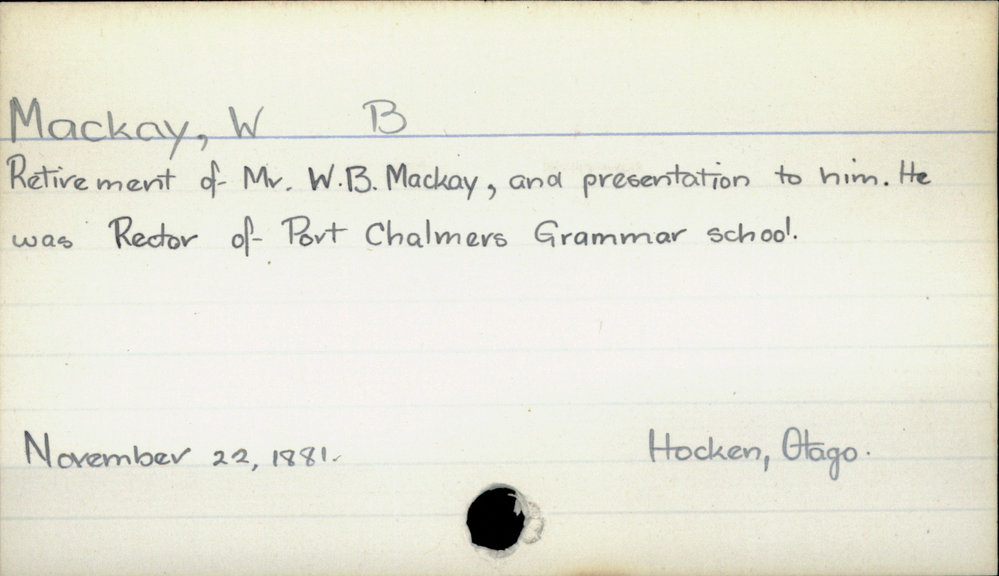 Mackay, W B
Retirement of Mr. W.B. Mackay, and presentation to him. He
was Rector of Port Chalmers Grammar school.
November 22, 1881.
Hocken, Otago.